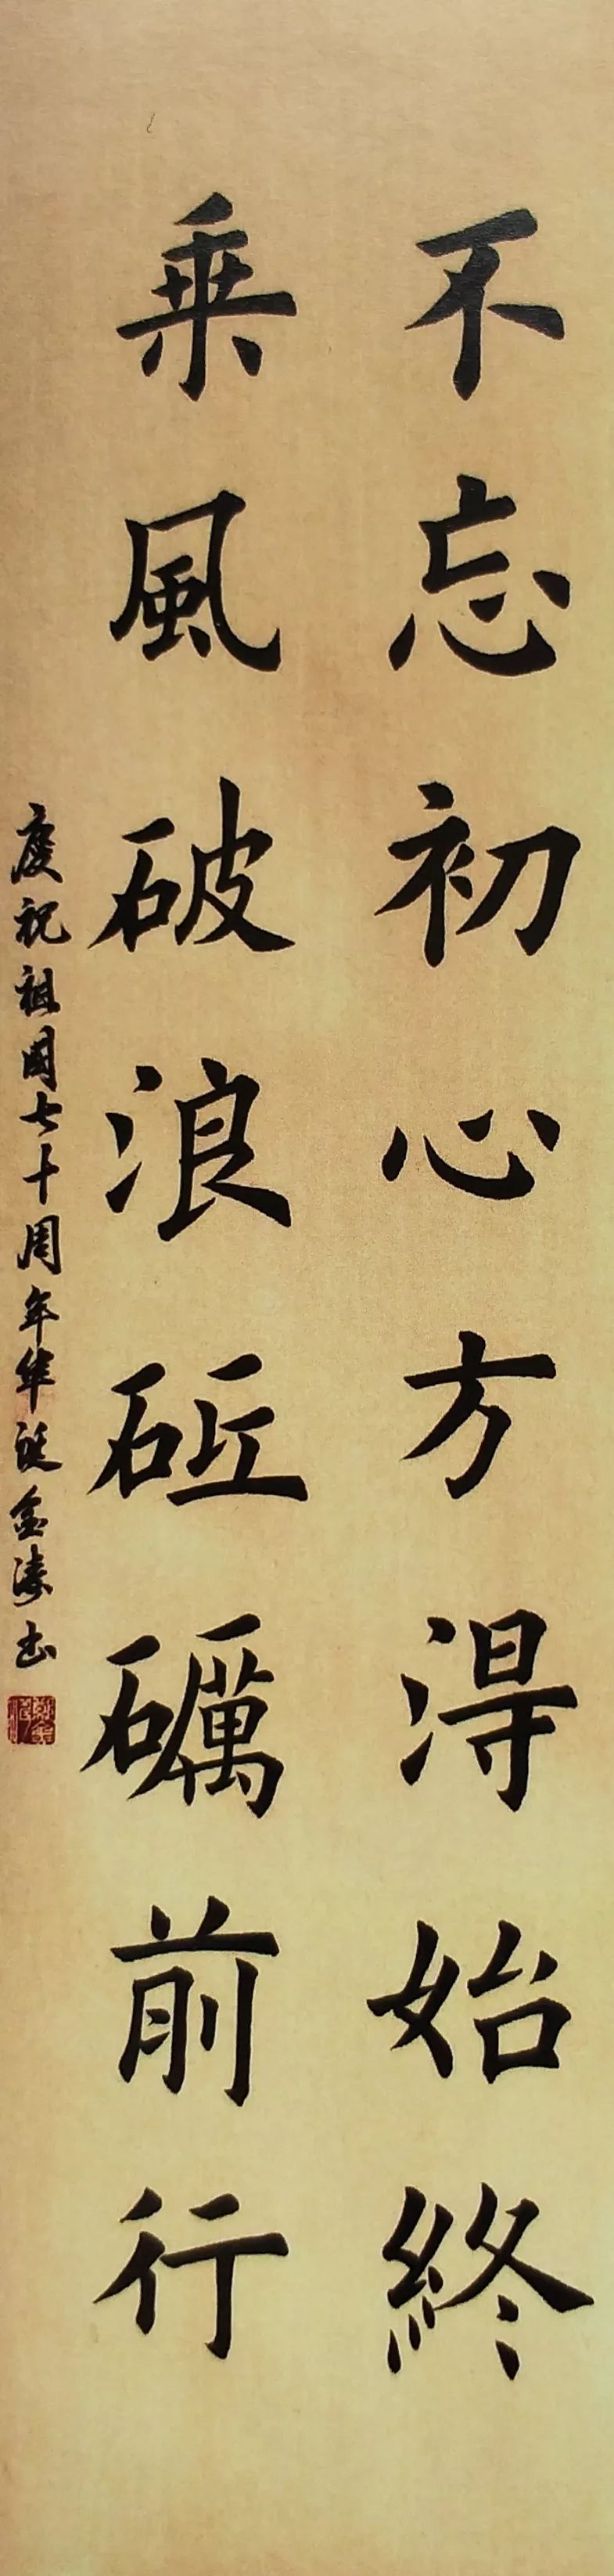 不忘初心方得始終
乘風破浪砥礪前行
慶祝祖國七十周年华诞金涛书